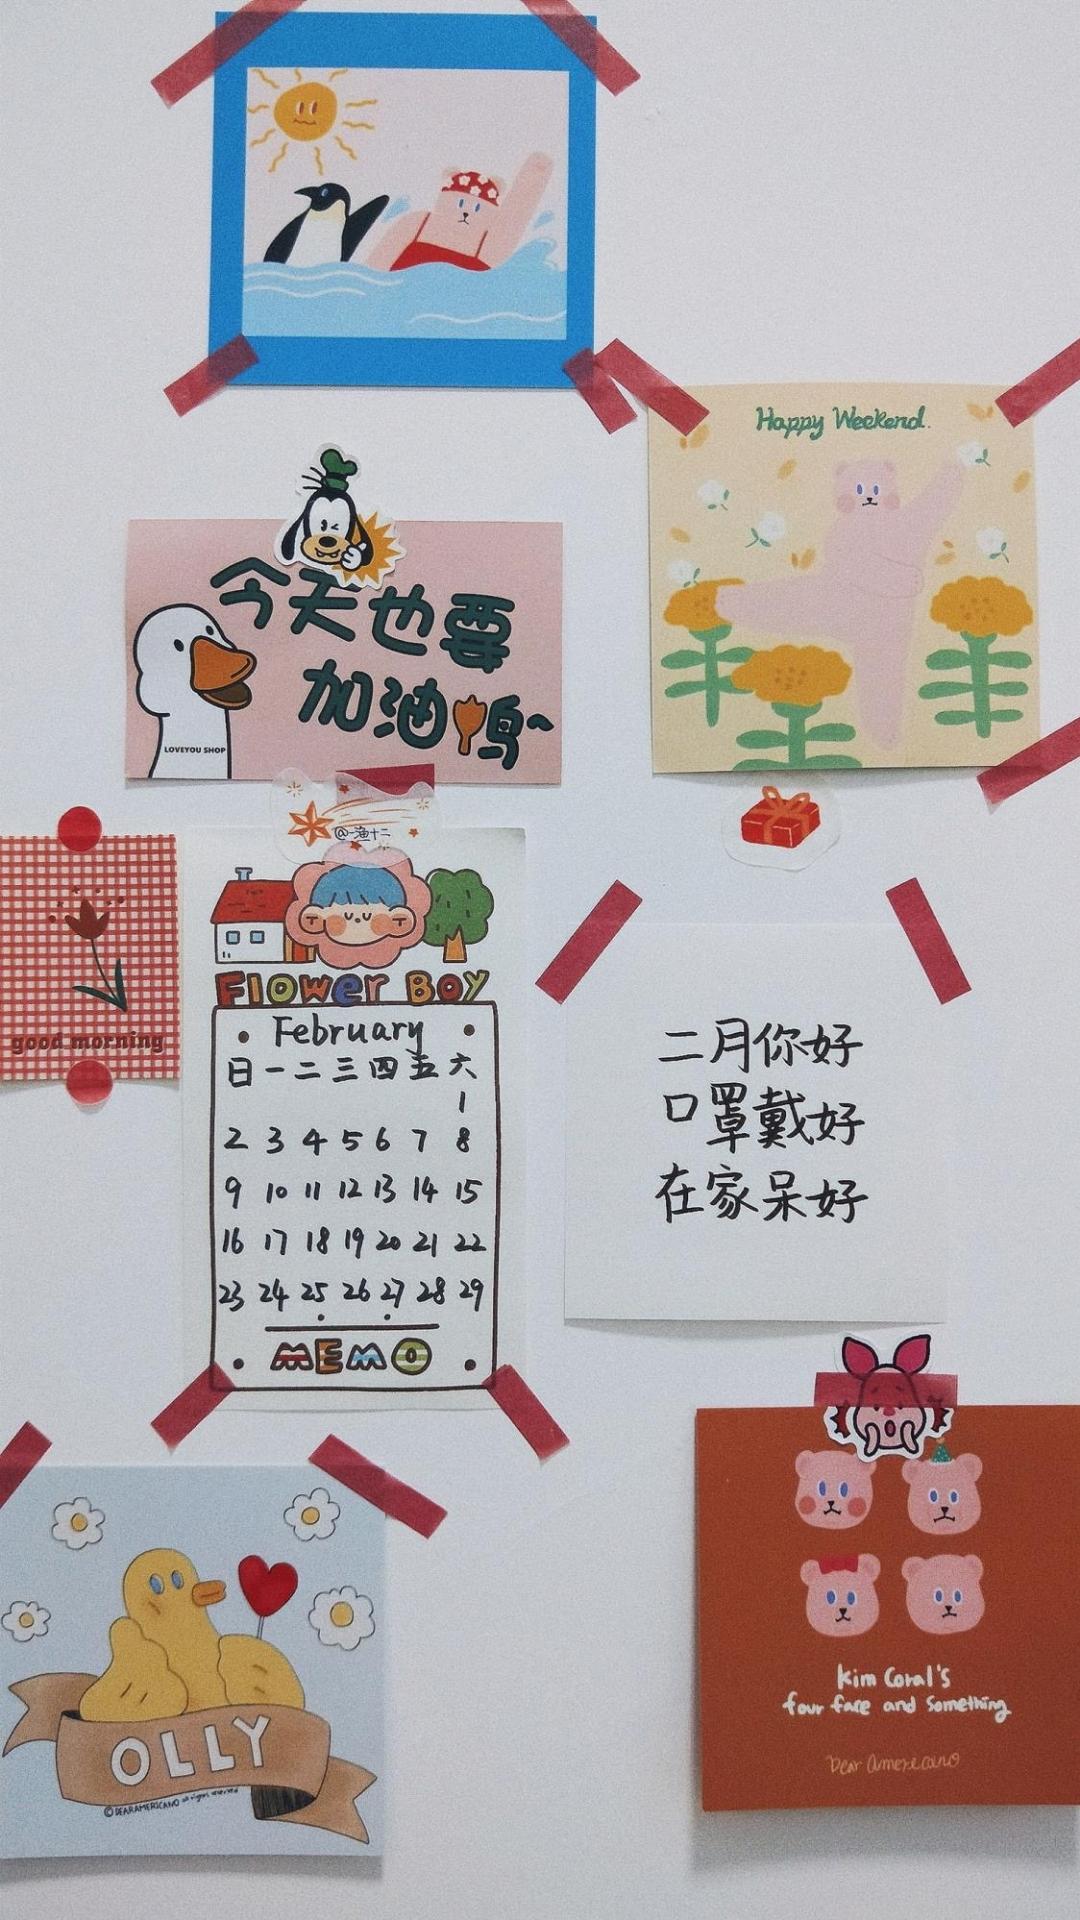 Happy Weekend.
今天也要
加油鸭~
LOVEYOU SHOP
@一渔十二
good morning
Flower Boy
February
日 一 二 三 四 五 六
1
2 3 4 5 6 7 8
9 10 11 12 13 14 15
16 17 18 19 20 21 22
23 24 25 26 27 28 29
MEMO
二月你好
口罩戴好
在家呆好
OLLY
©DEARAMERICANO all rights reserved
Kim Coral's
four face and something
Dear Americano